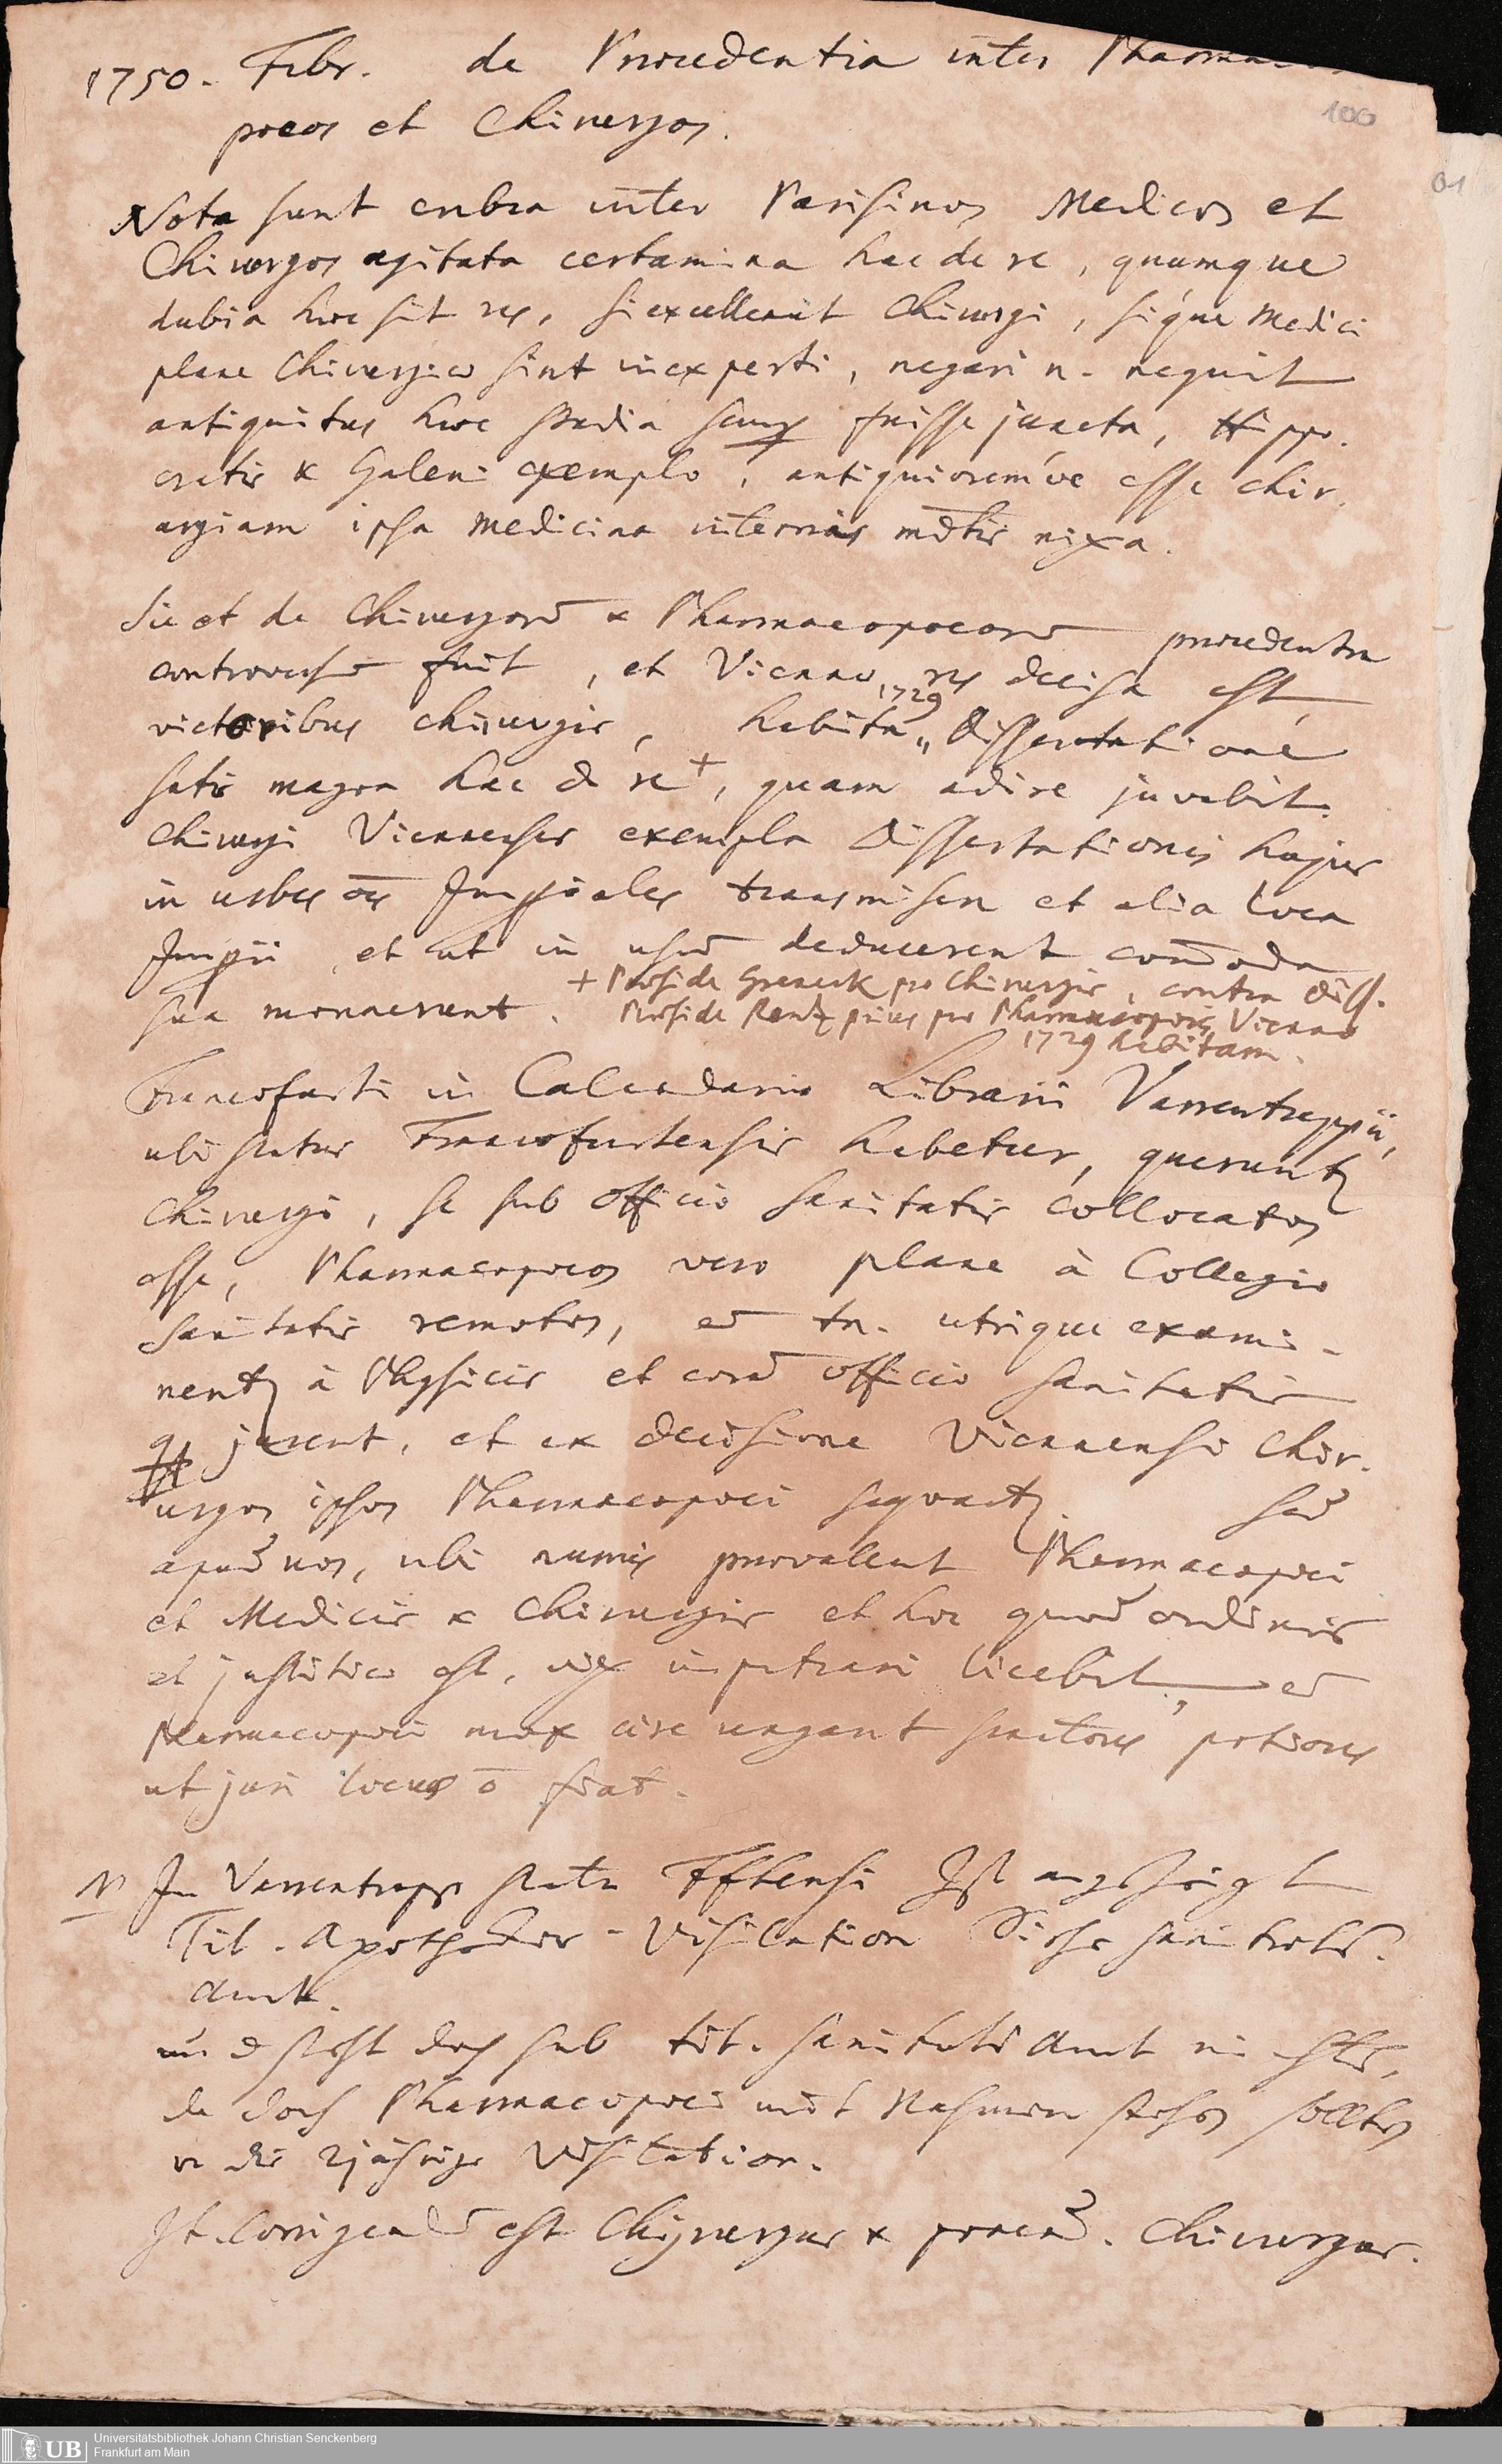 1750. Febr. de Praecedentia inter Pharmaco
poeos et Chirurgos.
100
01
Nota sunt crebra inter Parisinos Medicos et
Chirurgos agitata certamina hac de re, quamque
dubia haec sit res, si excellerent Chirurgi, sique Medici
plane Chirurgico sint inexperti, negari n. nequit
antiquitus haec studia semp fuisse juncta, Hippo.
cratis & Galeni exemplo, antiquioremve esse chir.
urgiam ipsa Medicina internis mdtis nixa.
Sic et de Chirurgorū & Pharmacopoeorū praecedentia
controversia fuit, et Viennae res decisa est,
victoribus chirurgis, habita 1729 Dissertatione
satis magna hac d re +, quam adire juvabit.
Chirurgi Viennenses exempla Dissertationis hujus
in urbes oēs Impiales transmisere et alia loca
Impii, et ut in usū deducerent com̄oda
sua monuerunt.
+ Praeside Greneck pro Chirurgis, contra Diss.
Praeside Rentz prius pro Pharmacopoeis Viennae
1729 habitam.
Francofurti in Calendario Librarii Varrentrappii,
ubi status Francofurtensis habetur, querunt
Chirurgi, se sub officio Sanitatis collocatos
esse, Pharmacopoeos vero plane à Collegio
Sanitatis remotos, cū tn. utrique exami-
nent à Physicis et corā officio Sanitatis
jurent, et ex decisione Viennensi Chir.
urgos ipsos Pharmacopoei sequant. Sed
apud nos, ubi numis praevalent Pharmacopoei
et Medicis & Chirurgis et hoc quod ordinis
et justitiae est, vix impetrari licebit, cū
Pharmacopoei mox aere ungant senatores potiores
ut juri locus ō fiat.
N In Varrentrapp statu Ffltensi Ist angezeigt
Tit. Apothecker-Visitation Siehe Sanitäts.
Amt.
un d steht doch sub tit. Sanitäts Amt nichts,
da doch Pharmacopoei mit Nahmen stehen sollten
u die 2jährige Visitation.
It. Corrigendū est Chyrurgus & ponend. Chirurgus.
Universitätsbibliothek Johann Christian Senckenberg
Frankfurt am Main
UB